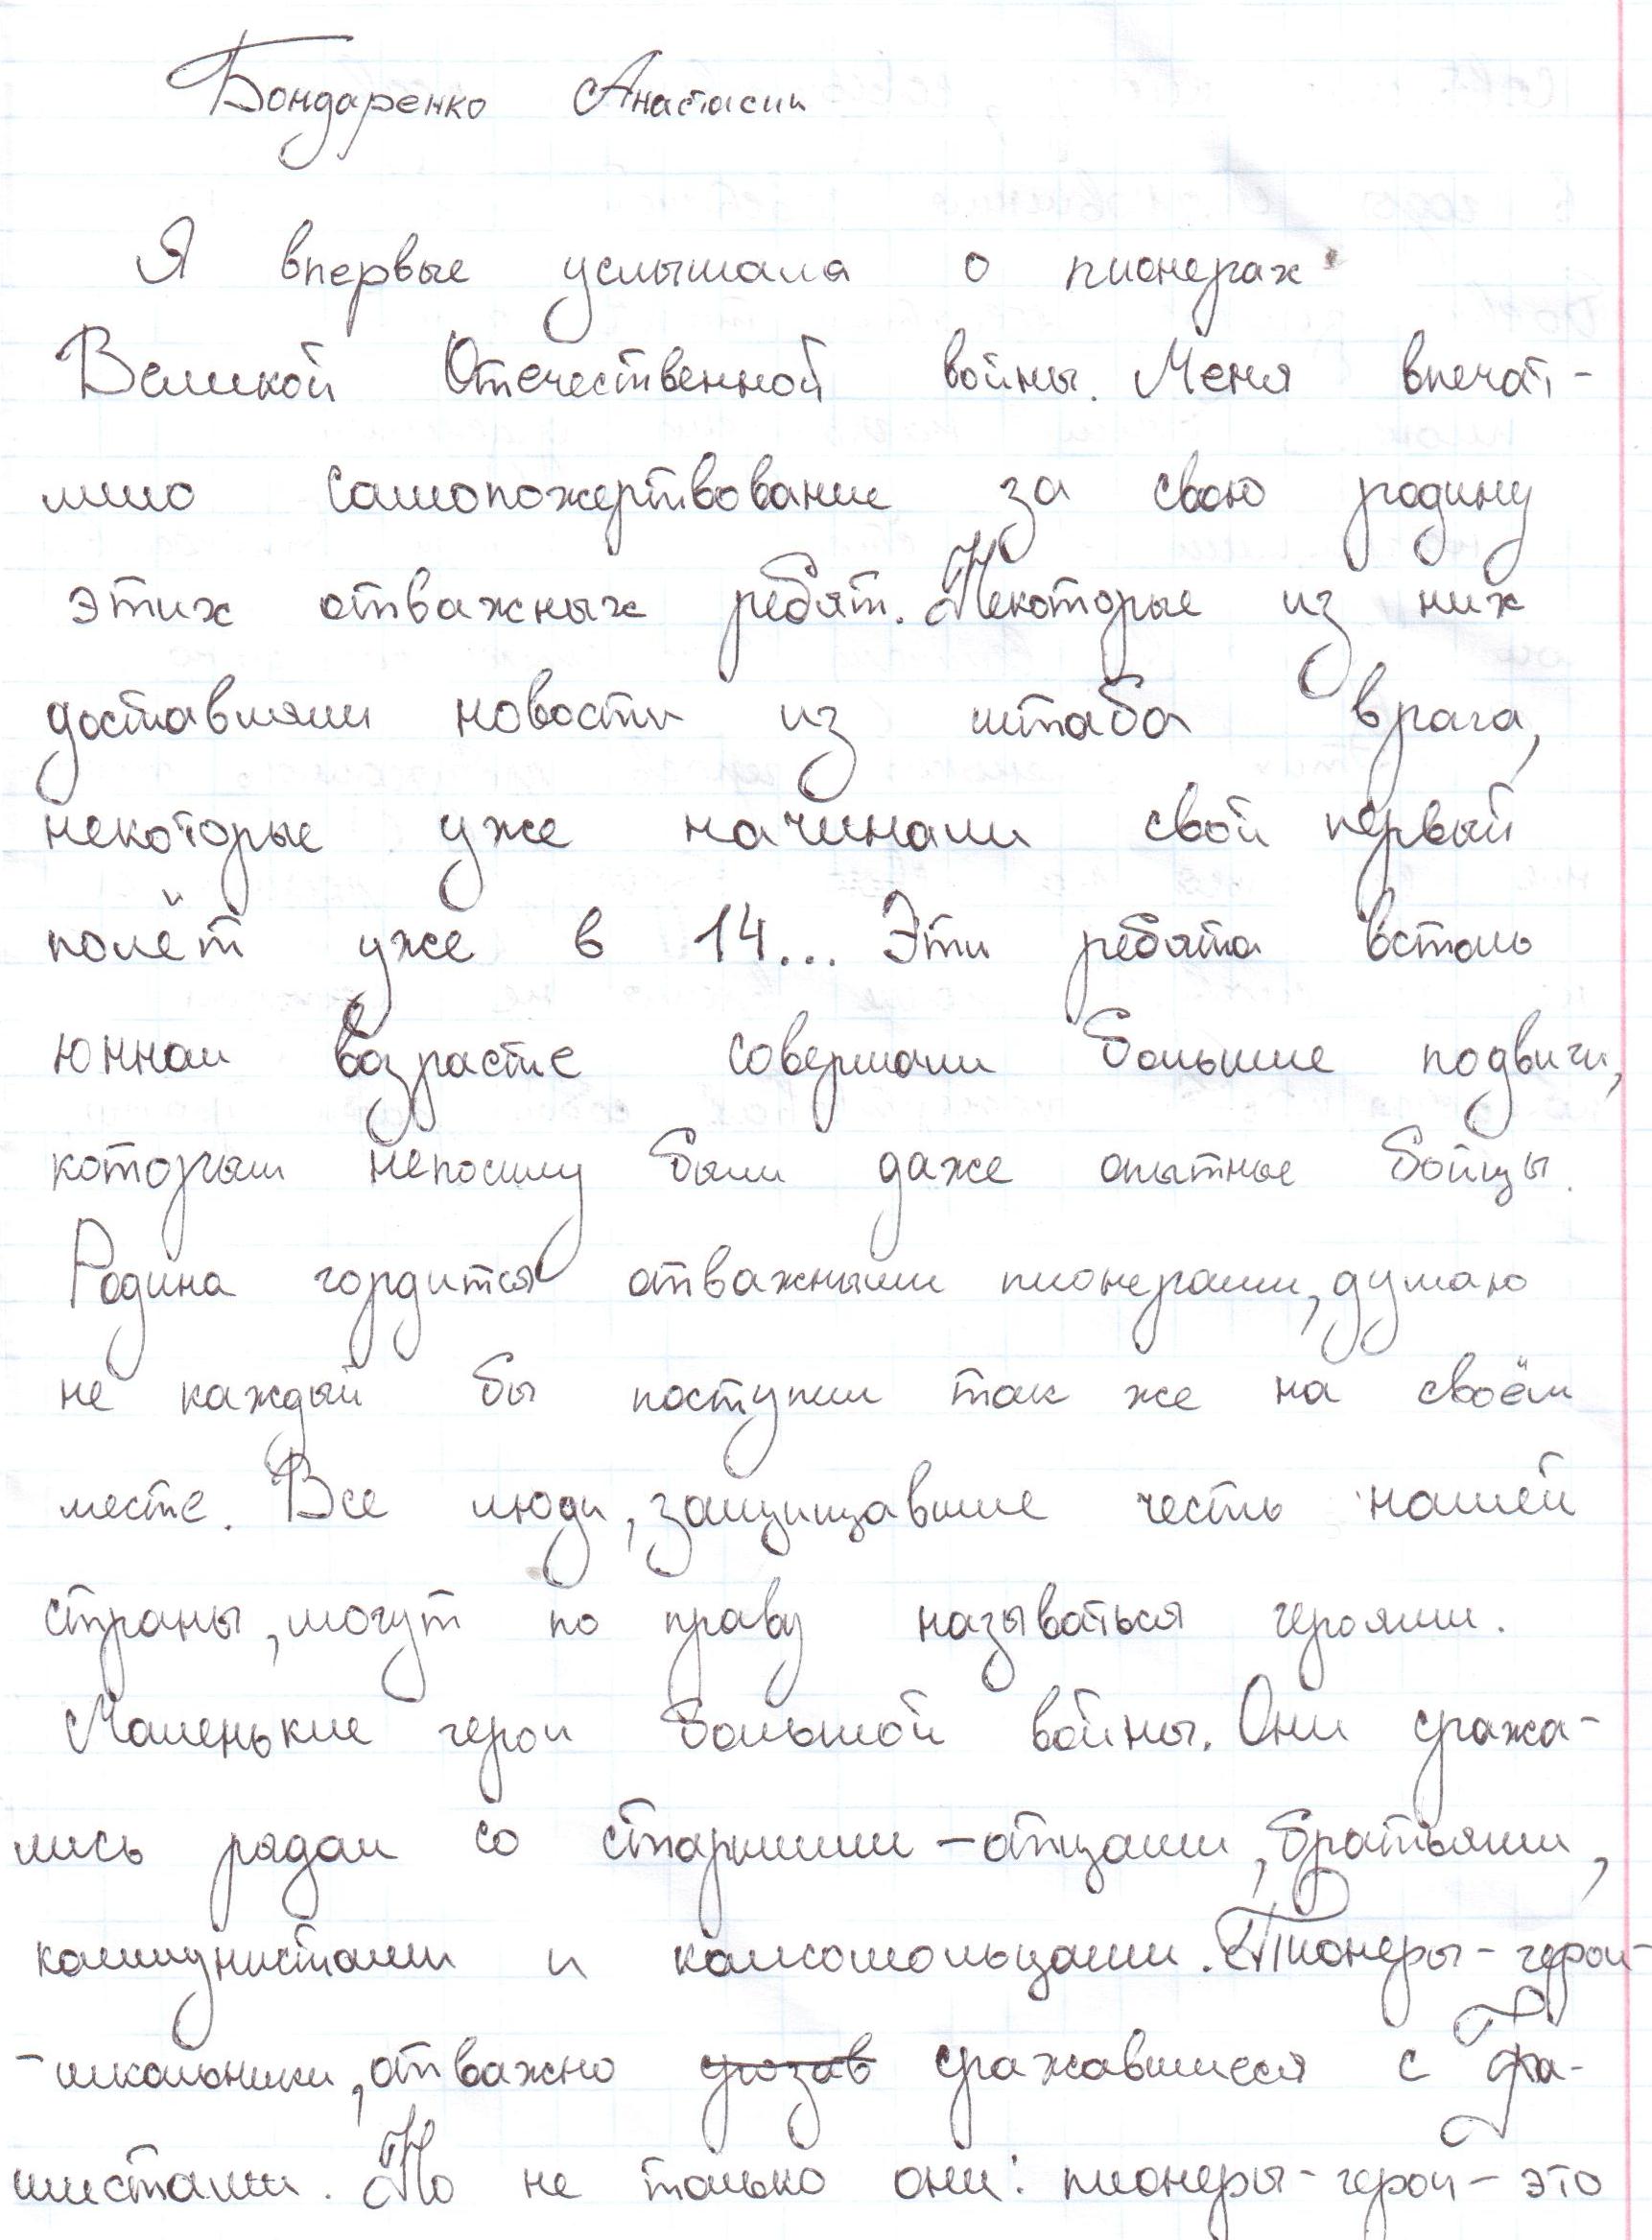 Бондаренко Анастасии
Я впервые услышала о пионерах
Великой Отечественной войны. Меня впечат-
лило самопожертвование за свою родину
этих отважных ребят. Некоторые из них
доставляли новости из штаба врага,
некоторые уже начинали свой первый
полёт уже в 14... Эти ребята встоль
юнном возрасте совершали большие подвиги,
которым непосилу были даже опытные бойцы.
Родина гордится отважными пионерами, думаю
не каждый бы поступил так же на своём
месте. Все люди, защищавшие честь нашей
страны, могут по праву называться героями.
Маленькие герои большой войны. Они сража-
лись рядом со старшими - отцами, братьями,
коммунистами и комсомольцами. Пионеры - герои -
- школьники, отважно сражавшиеся с фа-
шистами. Но не только они: пионеры - герои - это